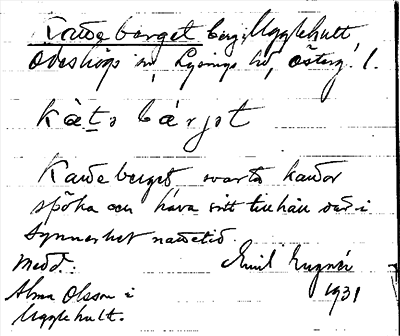 Katteberget berg, Ugglehult
Ödeshögs sn, Lysings hd, Österg. l.
kàtə bǽrjət
Katteberget svarta kattor
spöka och hava sitt tillhåll där i
synnerhet nattetid.
Medd.: Emil
Alma Olsson i 1931
Ugglehult.